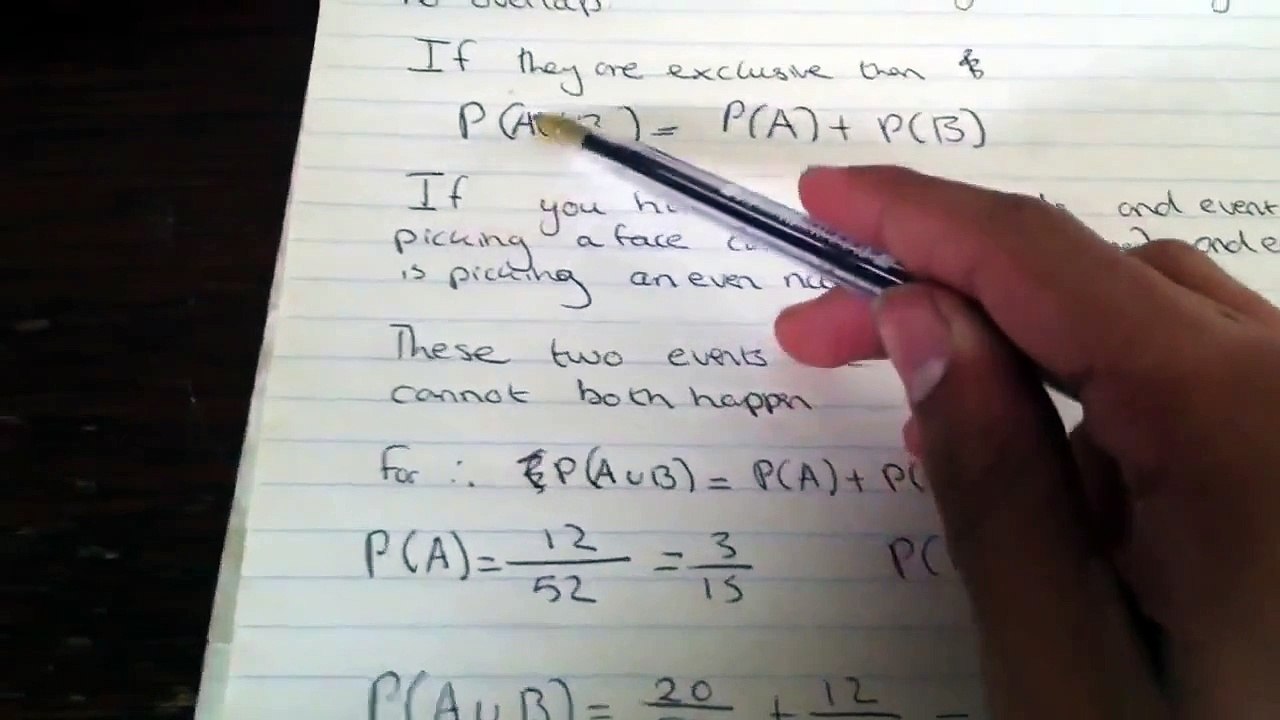 to overlaps
If they are exclusive then
P(A∪B) = P(A) + P(B)
If you and event
picking a face and e
is picking an even
These two events
cannot both happn
For ∴ P(A∪B) = P(A) + P(
P(A) = 12/52 = 3/15 P(
P(A∪B) = 20 + 12 =